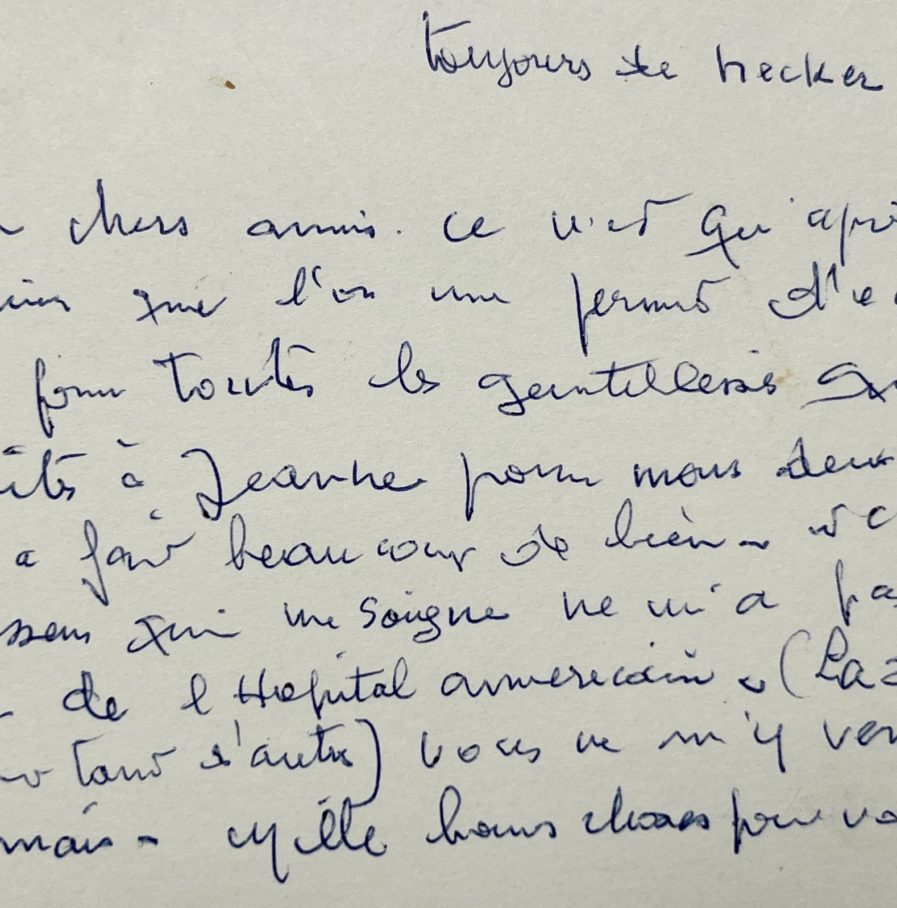 toujours de Necker
chers amis. ce n'est qu'apr
que l'on me permet d'e
pour toutes les gentillesses qu
à Jeanne pour nous deux
a fait beaucoup de bien - et c
qui me soigne ne m'a pas
de l'Hopital américain - (La
tant d'autres) vous ne m'y ver
mais - Mille bonnes choses pour vo